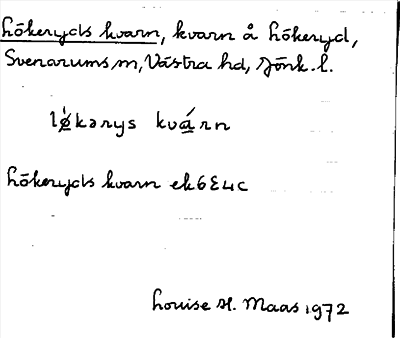 Lökeryds kvarn, kvarn å Lökeryd,
Svenarums sn, Västra hd, Jönk. l.
lǿkərys kvárn
Lökeryds kvarn ek 6E4c
Louise H. Maas 1972